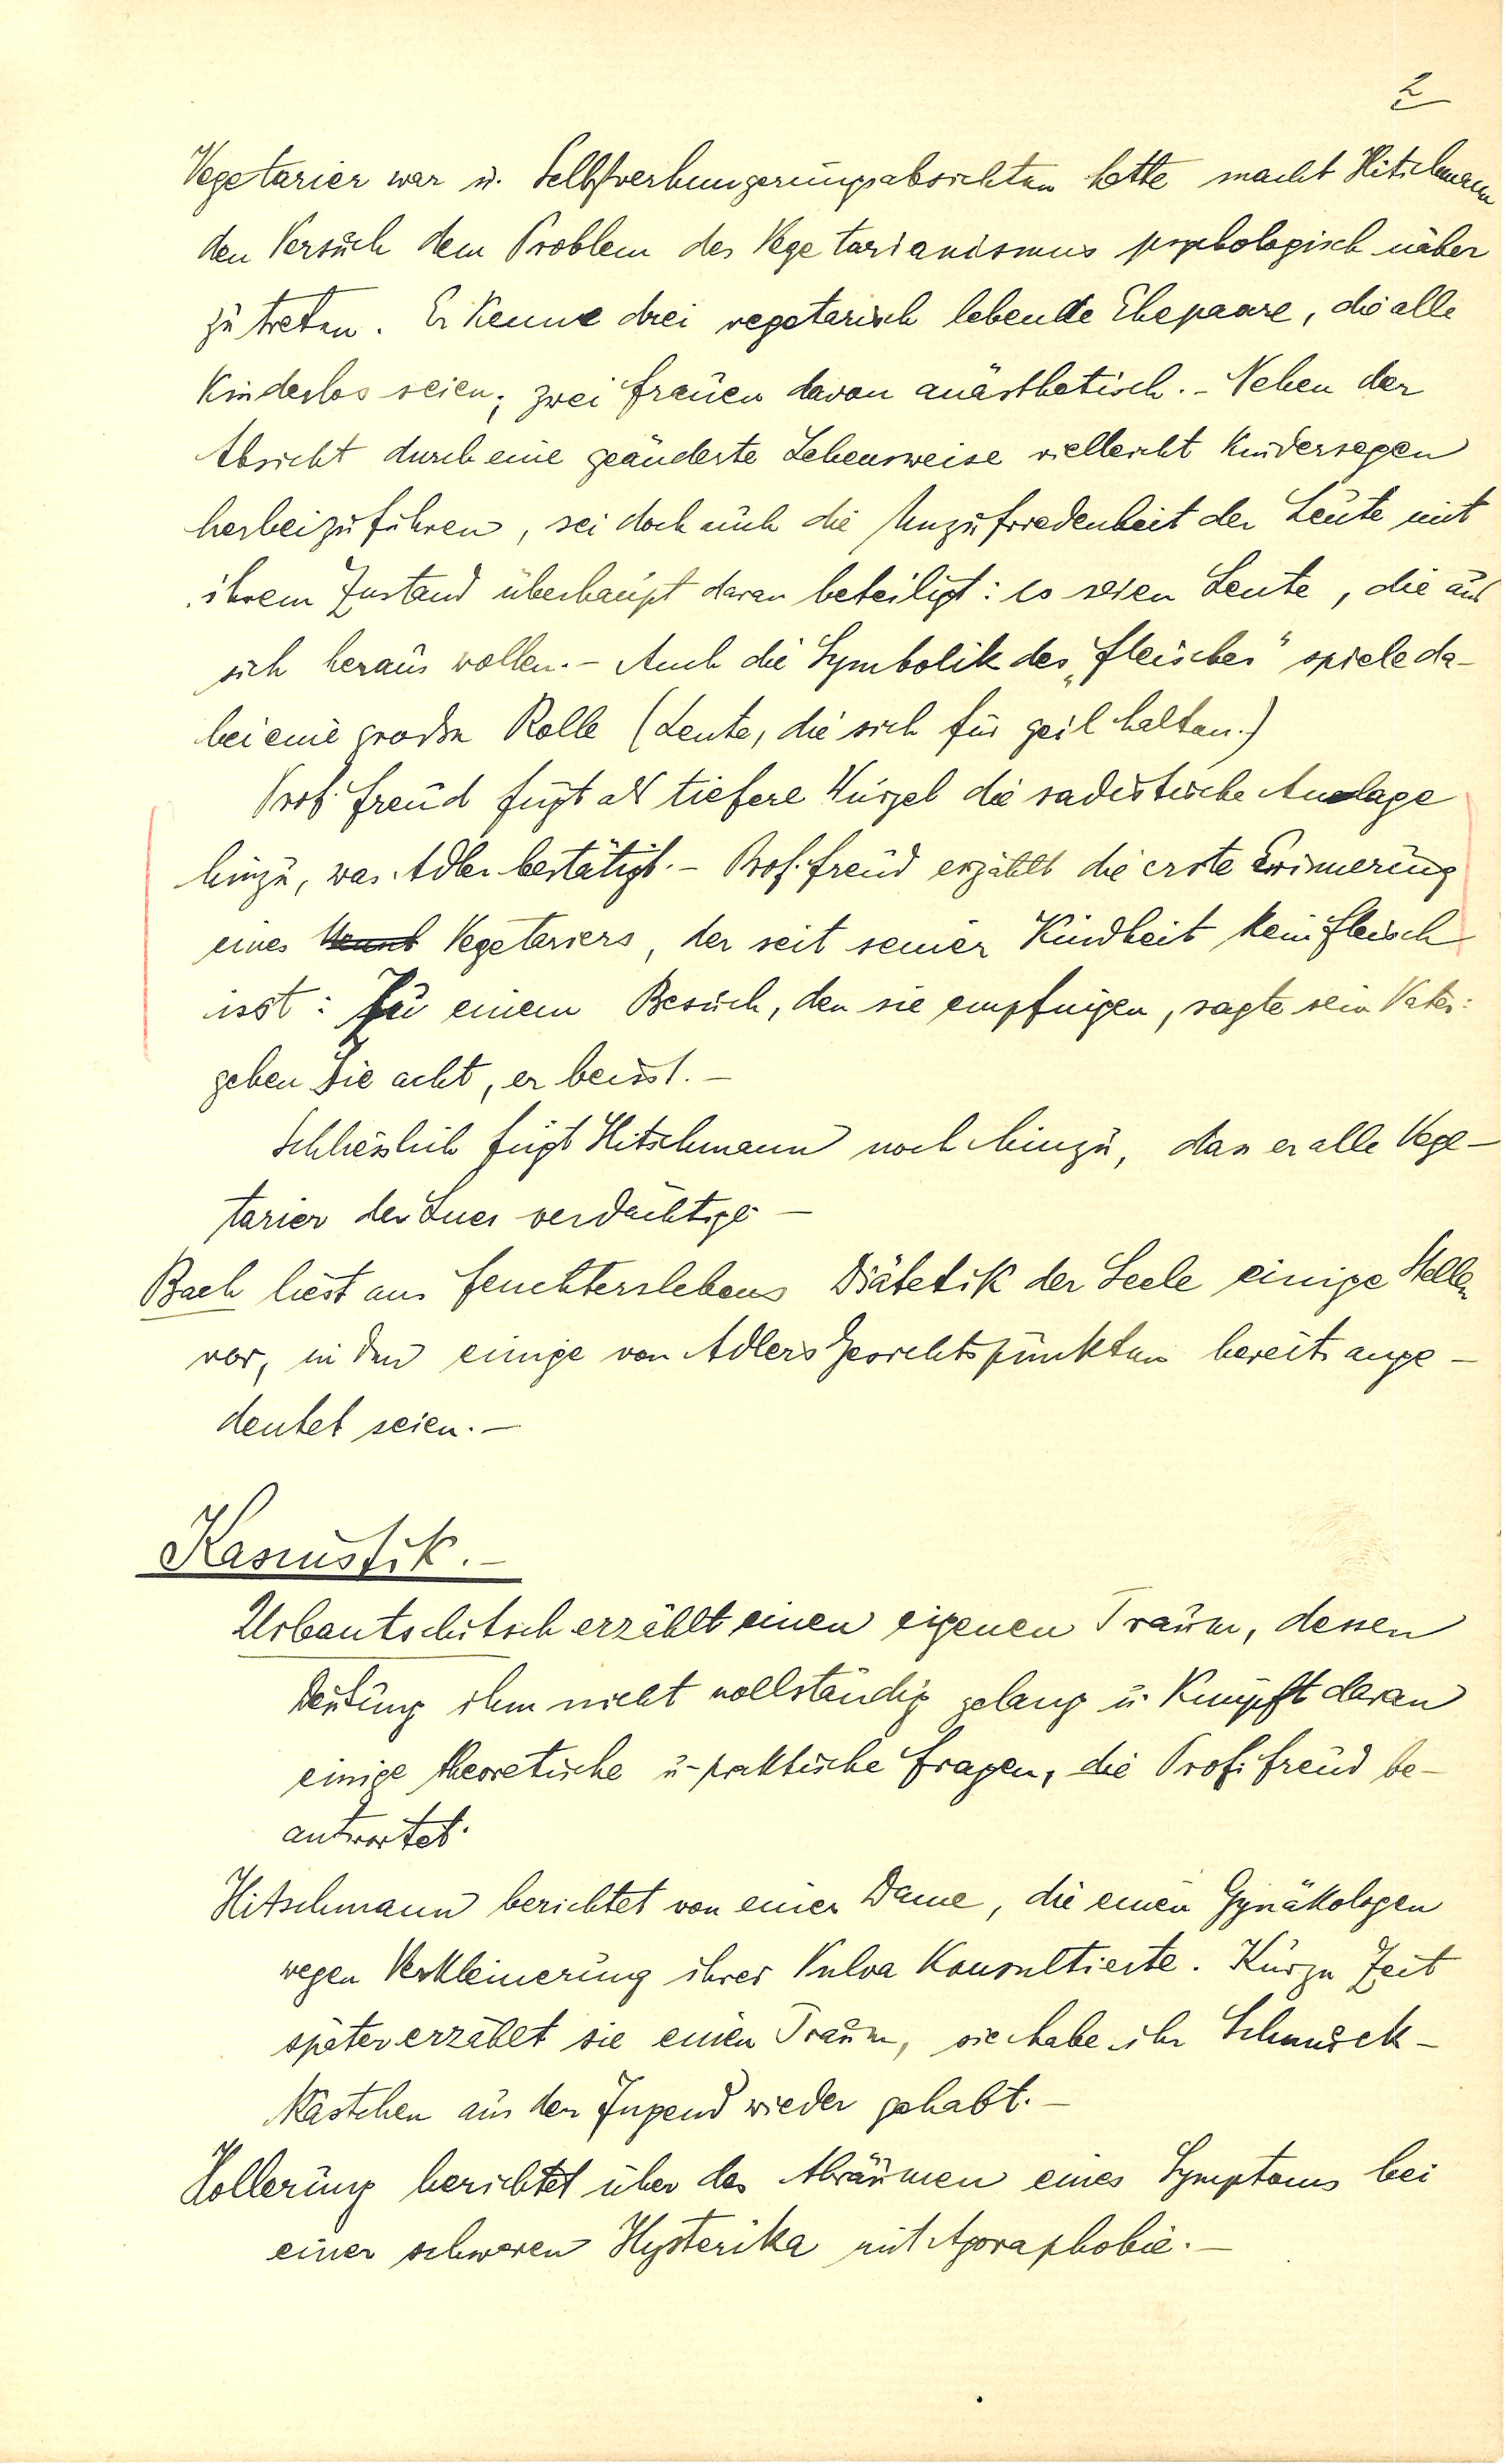 2
Vegetarier war u. Selbstverhungerungsabsichten hatte macht Hitschmann
den Versuch dem Problem des Vegetarianismus psychologisch näher
zu treten. Er kenne drei vegetarisch lebende Ehepaare, die alle
kinderlos seien; zwei Frauen davon anästhetisch. - Neben der
Absicht durch eine geänderte Lebensweise vielleicht Kindersegen
herbeizuführen, sei doch auch die Unzufriedenheit der Leute mit
ihrem Zustand überhaupt daran beteiligt: es seien Leute, die aus
sich heraus wollen. - Auch die Symbolik des „Fleisches" spiele da-
bei eine grosse Rolle (Leute, die sich für geil halten.)
Prof. Freud fügt als tiefere Wurzel die sadistische Anlage
hinzu, was Adler bestätigt. - Prof. Freud erzählt die erste Erinnerung
eines Vegetariers, der seit seiner Kindheit kein Fleisch
isst: Zu einem Besuch, den sie empfingen, sagte sein Vater:
geben Sie acht, er beisst. -
Schliesslich fügt Hitschmann noch hinzu, dass er alle Vege-
tarier der Lues verdächtige -
Bach liest aus Feuchterslebens Diätetik der Seele einige Stellen
vor, in den einige von Adlers Gesichtspunkten bereits ange-
deutet seien. -
Kasuistik. -
Urbantschitsch erzählt einen eigenen Traum, dessen
Deutung ihm nicht vollständig gelang u. knüpft daran
einige theoretische u. praktische Fragen, die Prof. Freud be-
antwortet.
Hitschmann berichtet von einer Dame, die einen Gynäkologen
wegen Verkleinerung ihrer Vulva konsultierte. Kurze Zeit
später erzählt sie einen Traum, sie habe ihr Schmuck-
kästchen aus der Jugend wieder gehabt. -
Hollerung berichtet über das Abräumen eines Symptoms bei
einer schweren Hysterika mit Agoraphobie. -